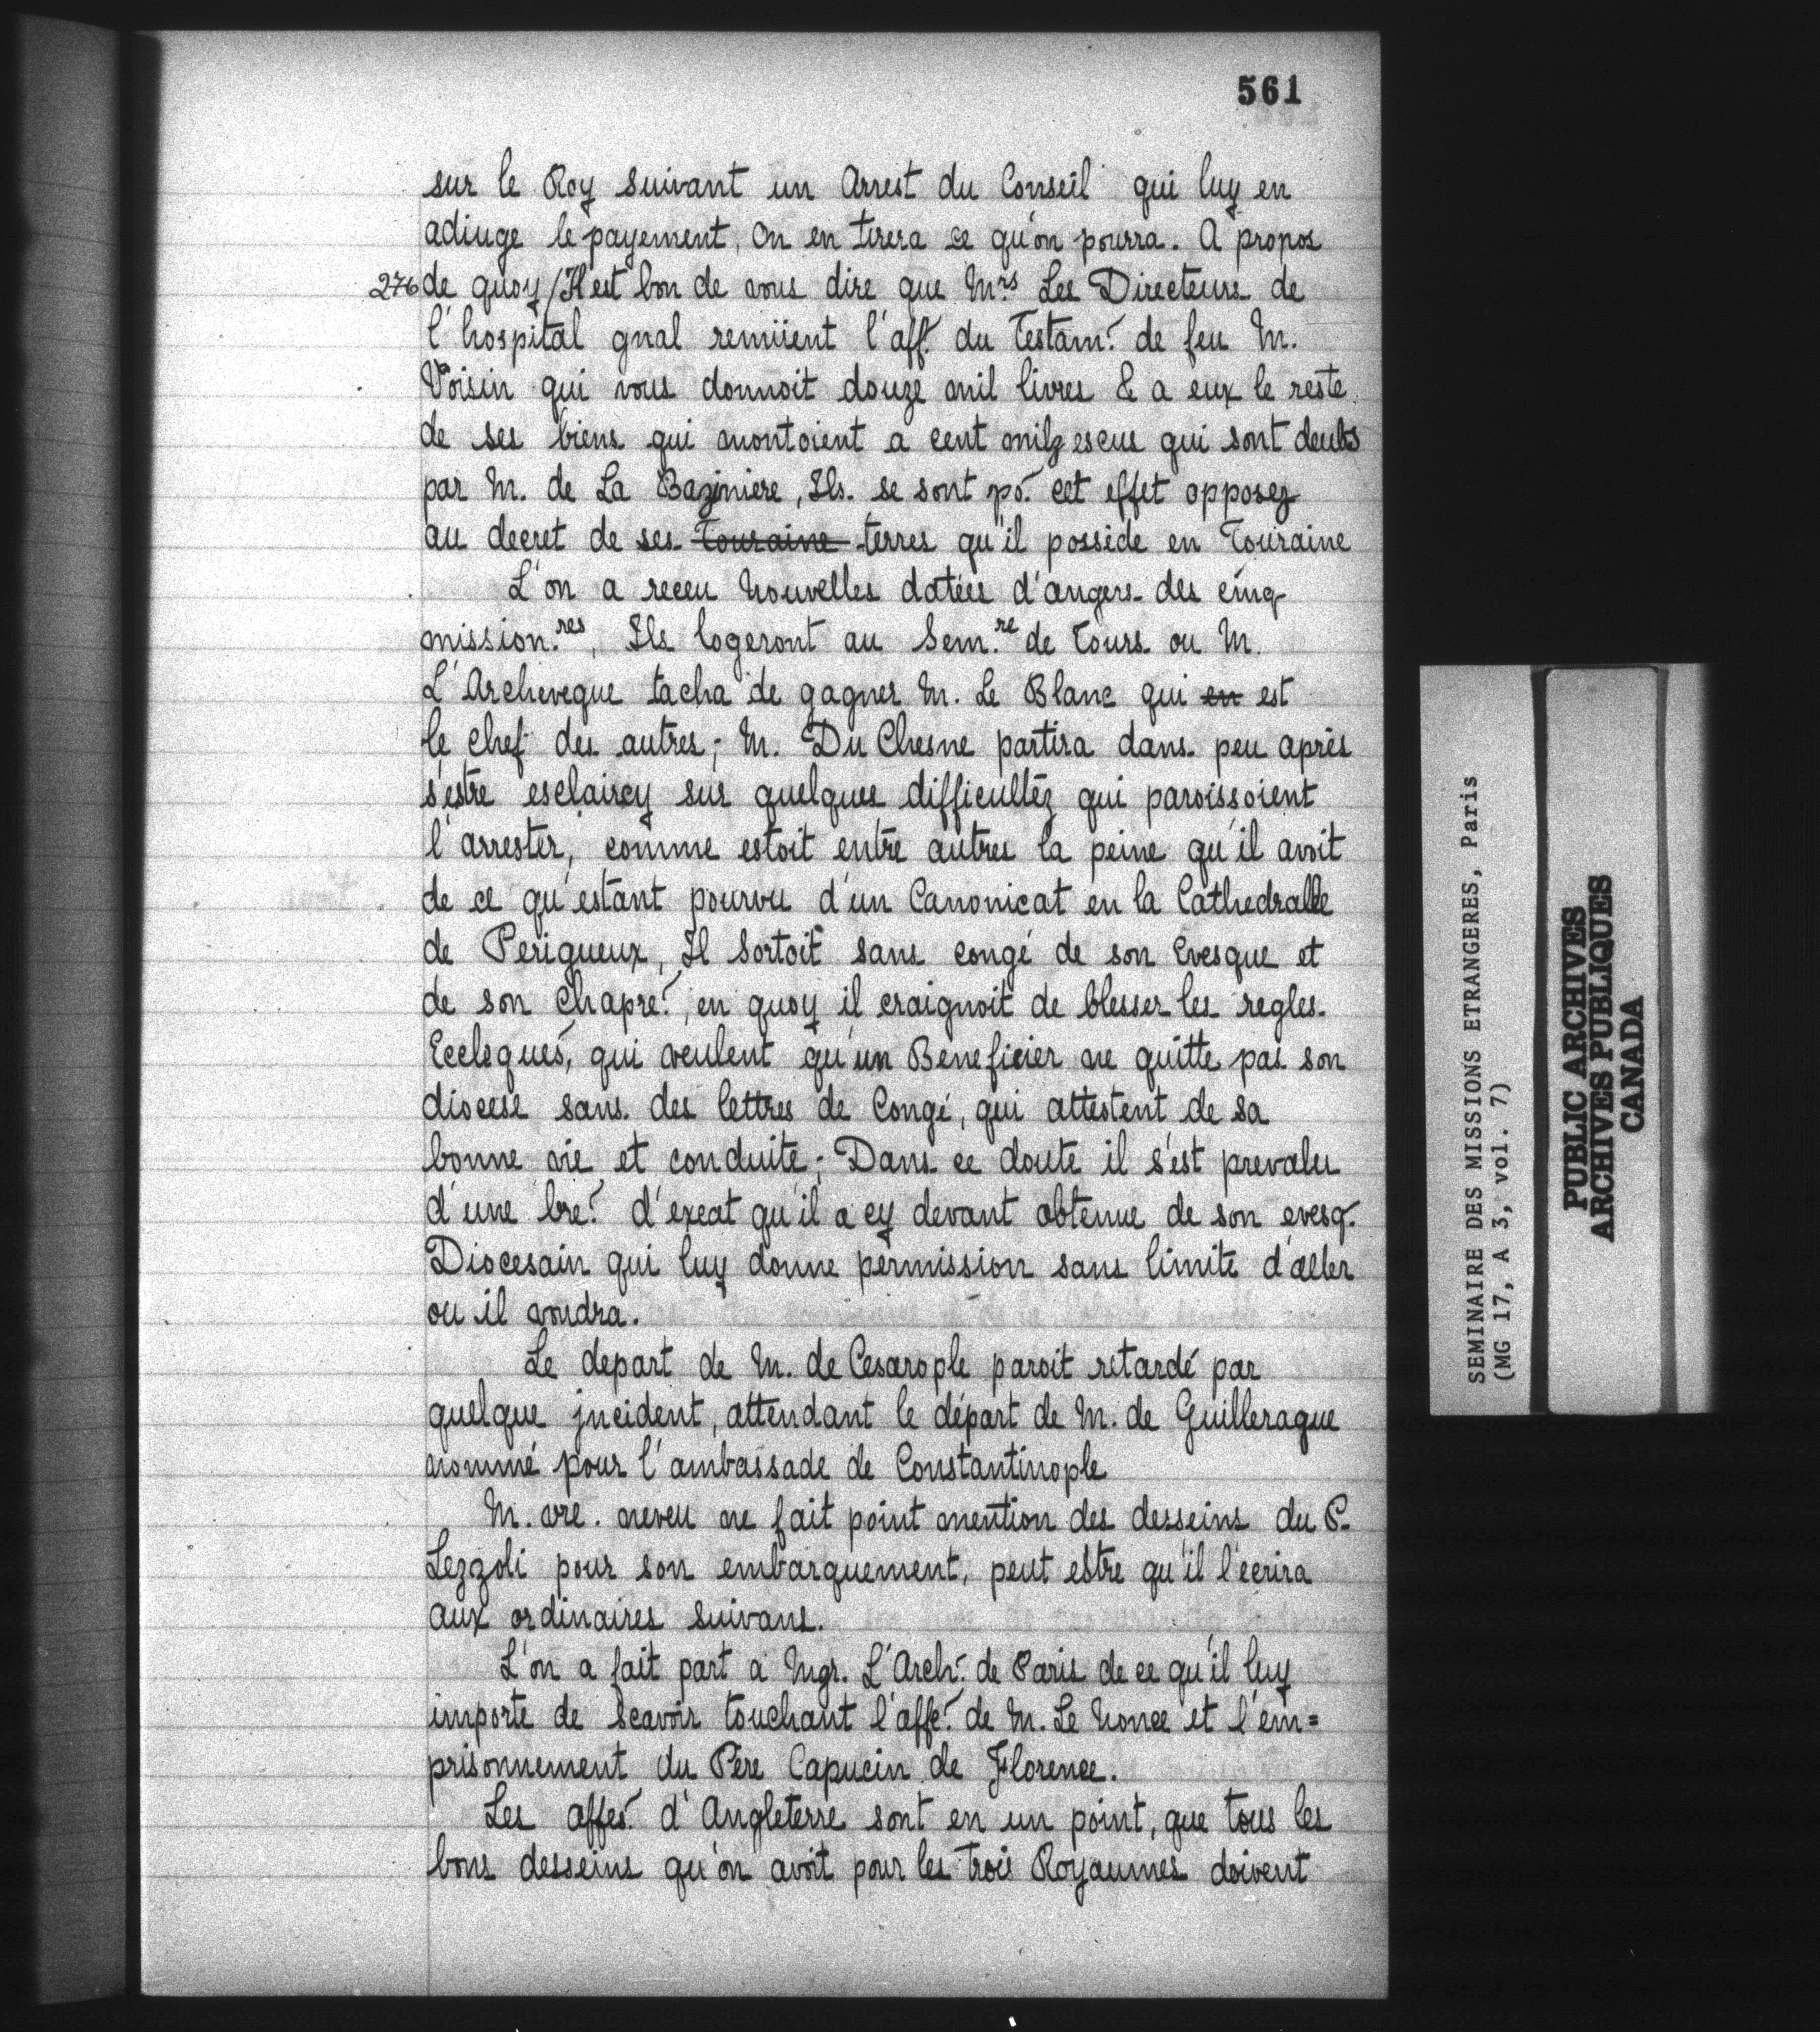 561
sur le Roy suivant un Arrest du Conseil qui luy en
adiuge le payement, On en tirera ce qu'on pourra. A propos
276 de quoy/Il est bon de vous dire que Mrs Les Directeurs de
l'hospital gnal remüent l'aff. du Testam.t de feu M.
Voisin qui vous donnoit douze mil livres & a eux le reste
de ses biens qui montoient a cent milz escus qui sont deubs
par M. de La Bazinière, Ils se sont po. cet effet opposez
au decret de ses ~~Touraine~~ terres qu'il possede en Touraine
L'on a receu nouvelles datées d'angers des cinq
mission.res, Ils logeront au Sem.re de Tours ou M.
L'Archeveque tacha de gagner M. Le Blanc qui ~~en~~ est
le chef des autres; M. Du Chesne partira dans peu après
s'estre esclaircy sur quelques difficultéz qui paroissoient
l'arrester, comme estoit entre autres la peine qu'il avoit
de ce qu'estant pourvu d'un Canonicat en la Cathedralle
de Perigueux, Il sortoit sans congé de son Evesque et
de son Chapre., en quoy il craignoit de blesser les regles
Eccleques, qui veulent qu'un Beneficier ne quitte pas son
diocese sans des lettres de Congé, qui attestent de sa
bonne vie et conduite; Dans ce doute il s'est prevalu
d'une lre. d'exeat qu'il a cy devant obtenue de son evesq.
Diocesain qui luy donne permission sans limite d'aller
ou il voudra.
Le depart de M. de Cesarople paroit retardé par
quelque jncident, attendant le départ de M. de Guilleraque
nommé pour l'ambassade de Constantinople
M. vre. neveu ne fait point mention des desseins du P.
Lezzoli pour son embarquement, peut estre qu'il l'ecrira
aux ordinaires suivans.
L'on a fait part a Mgr. L'Arch. de Paris de ce qu'il luy
importe de Scavoir touchant l'affe. de M. Le Nonce et l'em=
prisonnement du Père Capucin de Florence.
Les affes. d'Angleterre sont en un point, que tous les
bons desseins qu'on avoit pour les trois Royaumes doivent
SEMINAIRE DES MISSIONS ETRANGERES, Paris
(MG 17, A 3, vol. 7)
PUBLIC ARCHIVES
ARCHIVES PUBLIQUES
CANADA